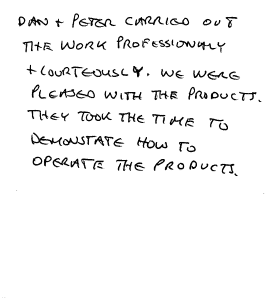 DAN + PETER CARRIED OUT
THE WORK PROFESSIONALLY
+ COURTEOUSLY. WE WERE
PLEASED WITH THE PRODUCTS.
THEY TOOK THE TIME TO
DEMONSTATE HOW TO
OPERATE THE PRODUCTS.